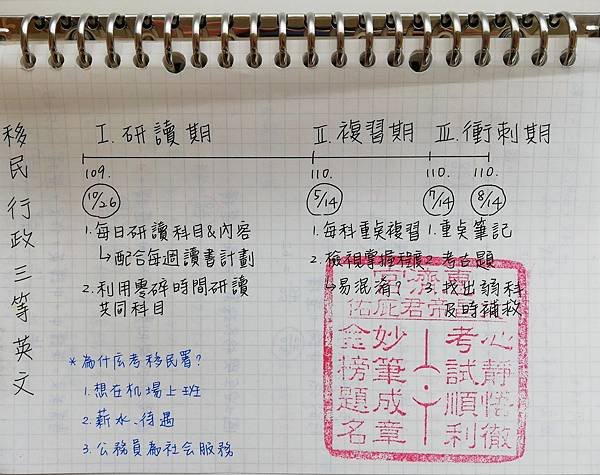 移民行政三等英文
I. 研讀期
II. 複習期
III. 衝刺期
109.
110.
110.
110.
10/26
5/14
7/14
8/14
1. 每日研讀科目&內容
↳配合每週讀書計劃
2. 利用零碎時間研讀
共同科目
1. 每科重點複習
2. 檢視掌握程度
↳易混淆?
1. 重点筆記
2. 考古題
3. 找出弱科
及時補救
*為什広考移民署?
1. 想在机場上班
2. 薪水、待遇
3. 公務員為社會服務
心靜悟徹
考試順利
妙筆成章
金榜題名